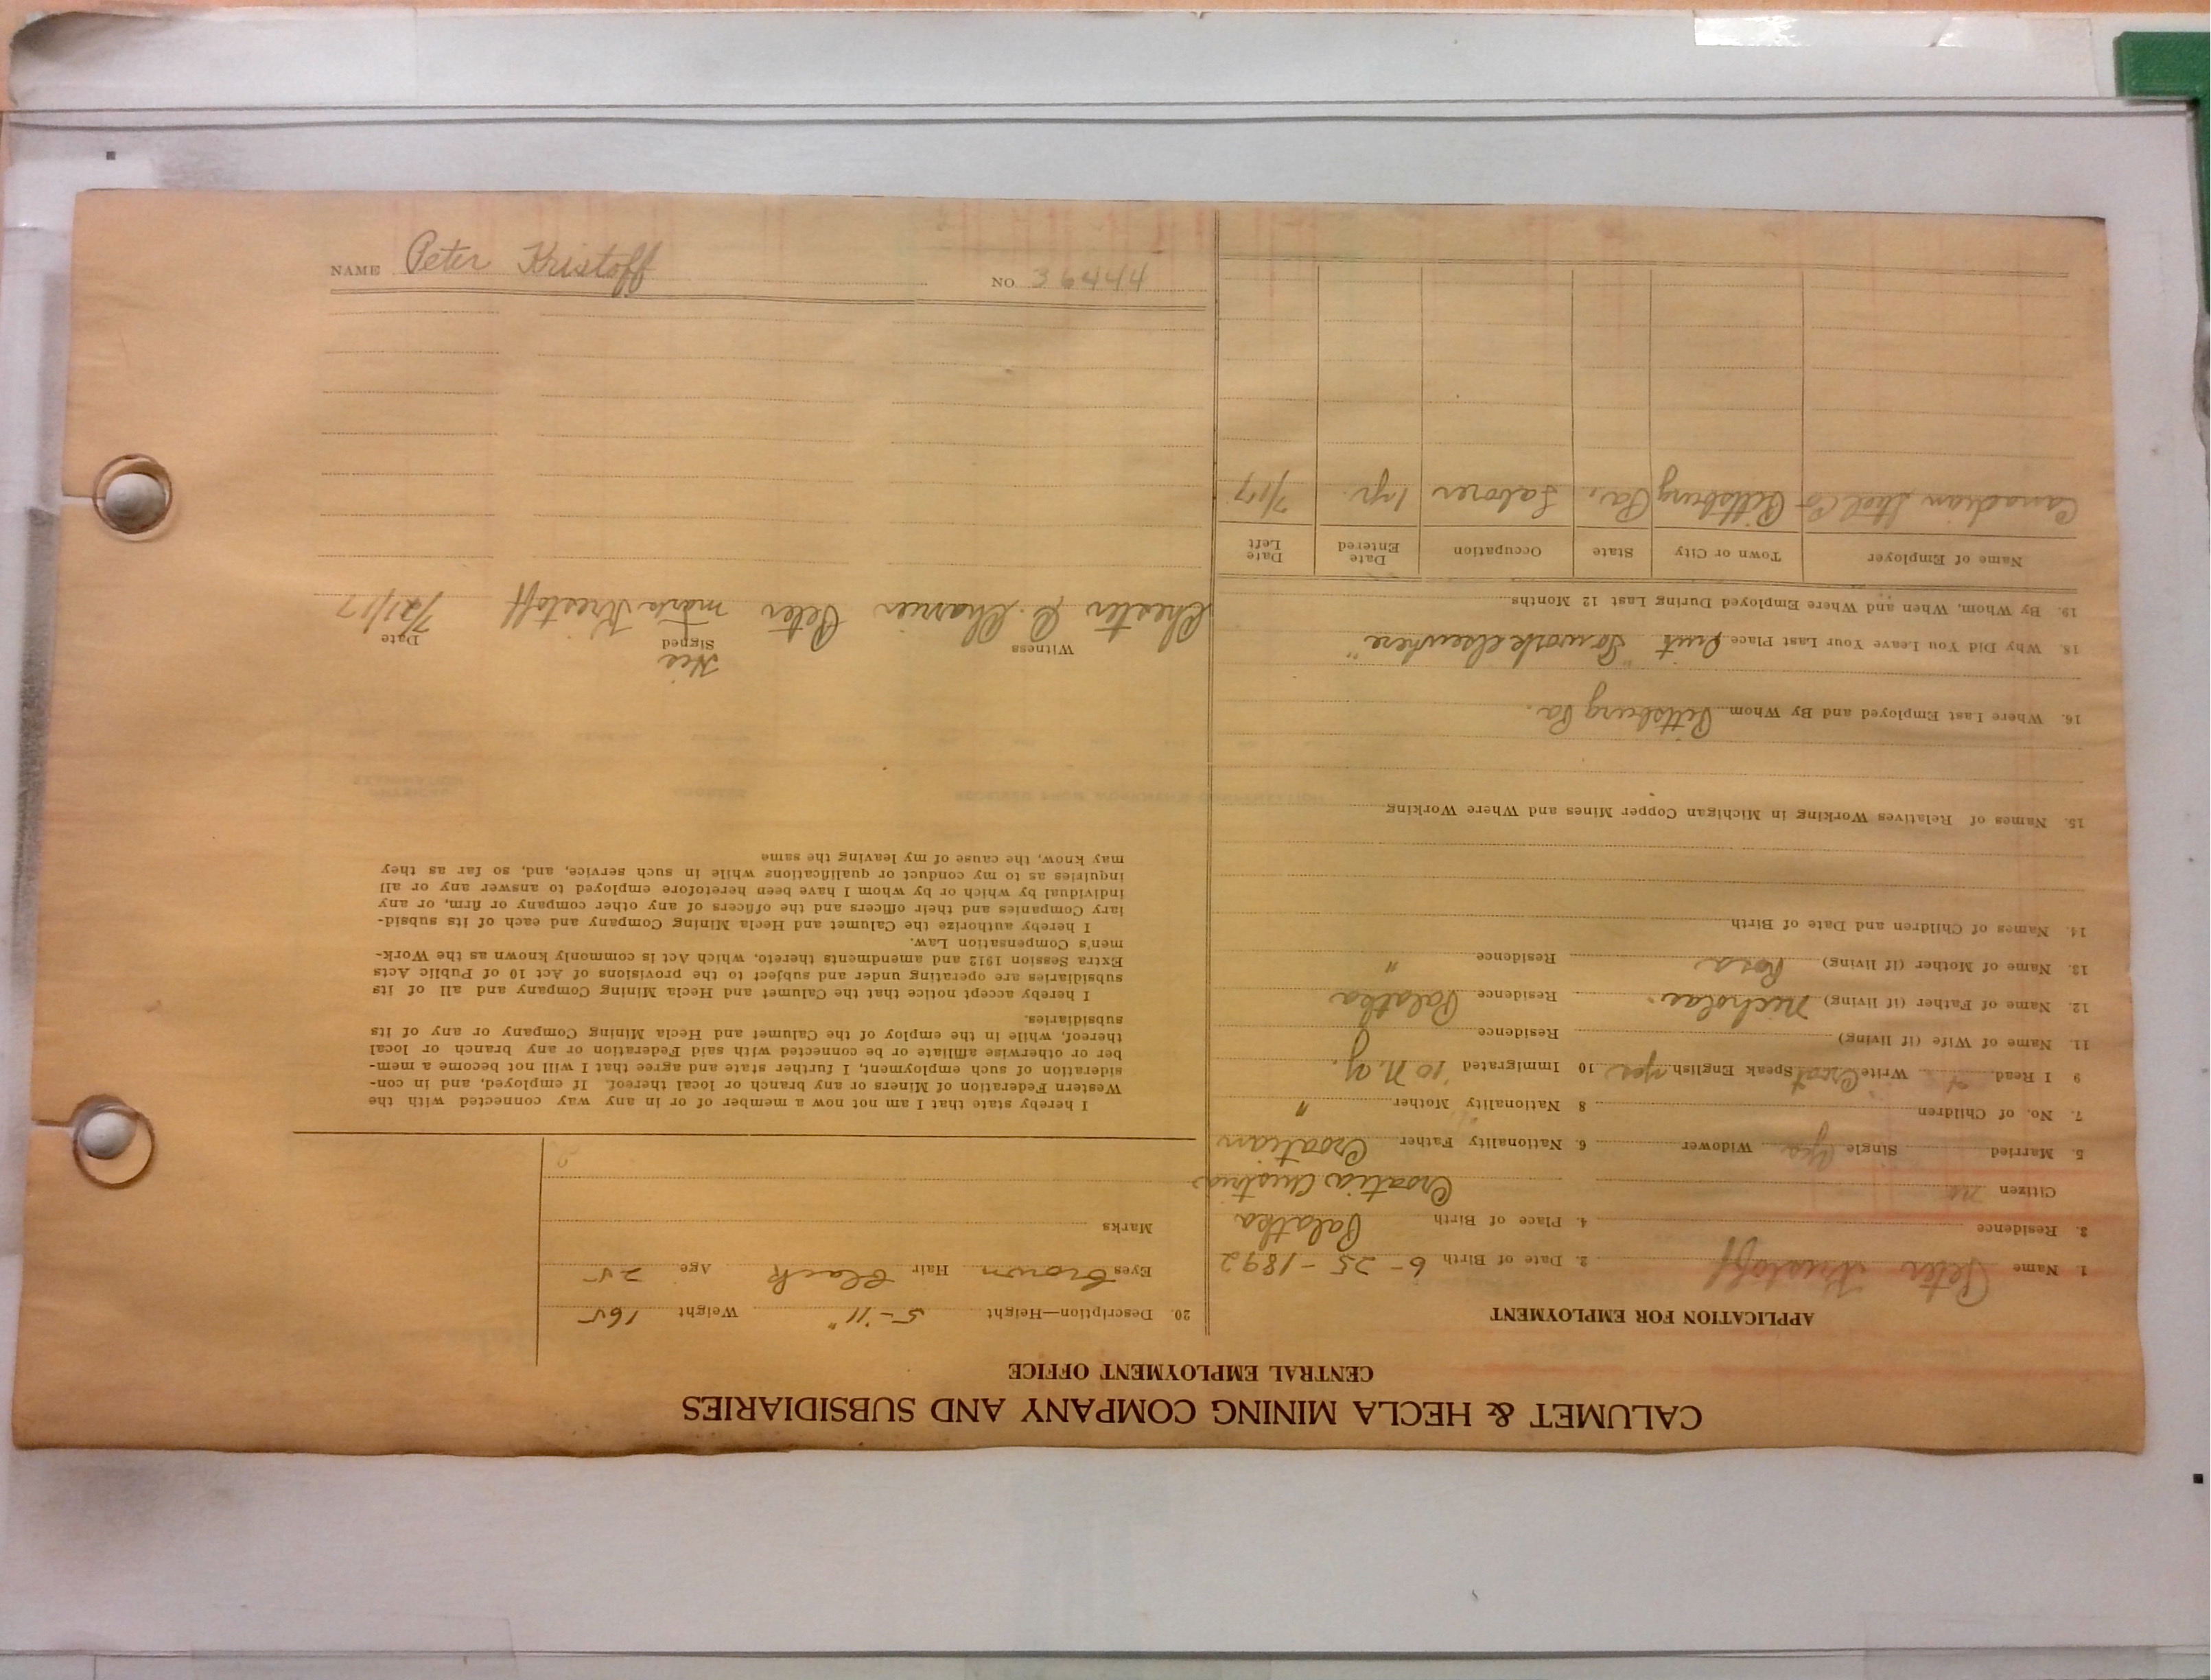 CALUMET & HECLA MINING COMPANY AND SUBSIDIARIES
CENTRAL EMPLOYMENT OFFICE
APPLICATION FOR EMPLOYMENT
1. Name Peter Kristoff 2. Date of Birth 6-25-1892
3. Residence 4. Place of Birth Palatka
Citizen no Croatia Austria
5. Married Single Yes Widower 6. Nationality Father Croatian
7. No. of Children 8 Nationality Mother "
9 I Read Write Croat Speak English yes 10 Immigrated '10 N.Y.
11. Name of Wife (if living) Residence
12. Name of Father (if living) Nicholas Residence Palatka
13. Name of Mother (if living) Rosa Residence "
14. Names of Children and Date of Birth
15. Names of Relatives Working in Michigan Copper Mines and Where Working
16. Where Last Employed and By Whom Pittsburg Pa.
18. Why Did You Leave Your Last Place Quit "To work elsewhere"
19. By Whom, When and Where Employed During Last 12 Months
Name of Employer Town or City State Occupation Date Entered Date Left
Canadian Steel Co Pittsburg Pa. Laborer 1 yr. 7/17
20. Description—Height 5-11" Weight 165
Eyes Brown Hair Black Age 25
Marks
I hereby state that I am not now a member of or in any way connected with the
Western Federation of Miners or any branch or local thereof. If employed, and in con-
sideration of such employment, I further state and agree that I will not become a mem-
ber or otherwise affiliate or be connected with said Federation or any branch or local
thereof, while in the employ of the Calumet and Hecla Mining Company or any of its
subsidiaries.
I hereby accept notice that the Calumet and Hecla Mining Company and all of its
subsidiaries are operating under and subject to the provisions of Act 10 of Public Acts
Extra Session 1912 and amendments thereto, which Act is commonly known as the Work-
men's Compensation Law.
I hereby authorize the Calumet and Hecla Mining Company and each of its subsid-
iary Companies and their officers and the officers of any other company or firm, or any
individual by which or by whom I have been heretofore employed to answer any or all
inquiries as to my conduct or qualifications while in such service, and, so far as they
may know, the cause of my leaving the same
His
Witness Signed Date
Chester C. Peter mark Krestoff 7/21/17
NAME Peter Kristoff NO 36444